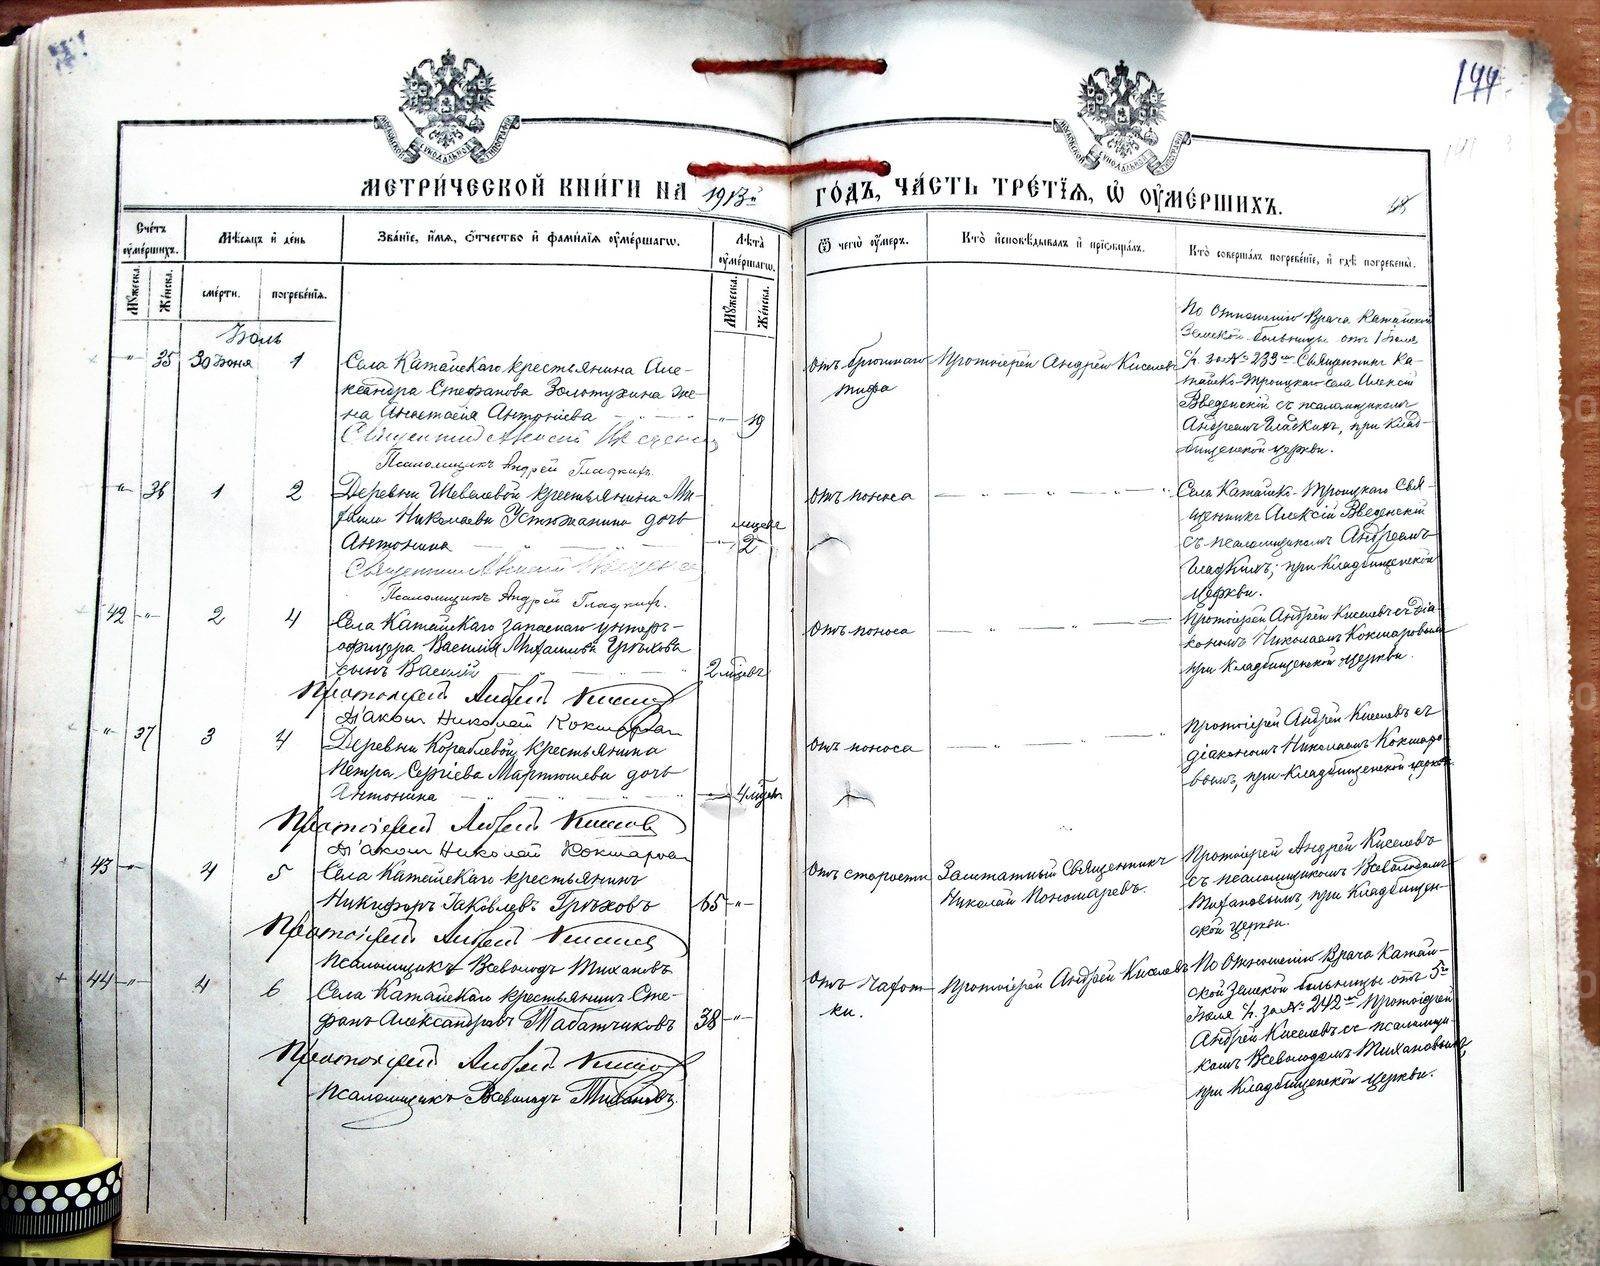 144
МЕТРИ́ЧЕСКОЙ КНИ́ГИ НА 1913й ГО́ДЪ, ЧА́СТЬ ТРЕ́ТІѦ, Ѡ҆ ОУ҆МЕ́РШИХЪ.
Сче́тъ оу҆ме́ршихъ.
Мѣ́сяцъ и҆ де́нь
Зва́нїе, и҆́мя, ѻ҆́тчество и҆ фами́лїя оу҆ме́ршагѡ.
Лѣ́та оу҆ме́ршагѡ.
Ѿ чегѡ̀ оу҆́меръ.
Кто̀ и҆сповѣ́дывалъ и҆ прїѡбща́лъ.
Кто̀ соверша́лъ погребе́нїе, и҆ гдѣ̀ погребены̀.
Мꙋ́жеска.
Же́нска.
сме́рти.
погребе́нїя.
Мꙋ́жеска.
Же́нска.
Іюль
35 30 Іюня 1
Села Катайскаго крестьянина Але-
ксандра Стефанова Золотухина же-
на Анастасія Антоніева
19
Псаломщикъ Андрей Гладкихъ.
Отъ брюшнаго
тифа
Протоіерей Андрей Киселевъ
По Отношенію Врача Катайской
Земской больницы отъ 1 Іюля
с/г. за № 233м Священникъ Ка-
тайско-Троицкаго села Алексій
Введенскій съ псаломщикомъ
Андреемъ Гладкихъ, при Клад-
бищенской церкви.
36 1 2
Деревни Шевелевой крестьянина Ми-
хаила Николаева Устюжанина дочь
Антонина
мѣсяца
2
Псаломщикъ Андрей Гладкихъ.
Отъ поноса
Села Катайско-Троицкаго Свя-
щенникъ Алексій Введенскій
съ псаломщикомъ Андреемъ
Гладкихъ, при Кладбищенской
церкви.
42 2 4
Села Катайскаго запаснаго унтеръ-
офицера Василія Михаилова Грѣхова
сынъ Василій
2 мѣсяц.
Протоіерей Андрей Киселевъ
Діаконъ Николай Кокшаровъ
Отъ поноса
Протоіерей Андрей Киселевъ съ діа-
кономъ Николаемъ Кокшаровымъ
при Кладбищенской церкви.
37 3 4
Деревни Кораблевой крестьянина
Петра Сергіева Мартюшева дочь
Антонина
4 мѣсяц.
Протоіерей Андрей Киселевъ
Діаконъ Николай Кокшаровъ
Отъ поноса
Протоіерей Андрей Киселевъ съ
діакономъ Николаемъ Кокшаро-
вымъ, при Кладбищенской церкви.
43 4 5
Села Катайскаго крестьянинъ
Никифоръ Іаковлевъ Грѣховъ
65
Протоіерей Андрей Киселевъ
Псаломщикъ Всеволодъ Тихановъ
Отъ старости
Заштатный Священникъ
Николай Пономаревъ.
Протоіерей Андрей Киселевъ
съ псаломщикомъ Всеволодомъ
Тихановымъ, при Кладбищен-
ской церкви.
44 4 6
Села Катайскаго крестьянинъ Сте-
фанъ Александровъ Табатчиковъ
38
Протоіерей Андрей Киселевъ
Псаломщикъ Всеволодъ Тихановъ.
Отъ Чахот-
ки.
Протоіерей Андрей Киселевъ
По Отношенію Врача Катай-
ской Земской больницы отъ 5го
Іюля с/г. за № 242м Протоіерей
Андрей Киселевъ съ псаломщи-
комъ Всеволодомъ Тихановымъ,
при Кладбищенской церкви.